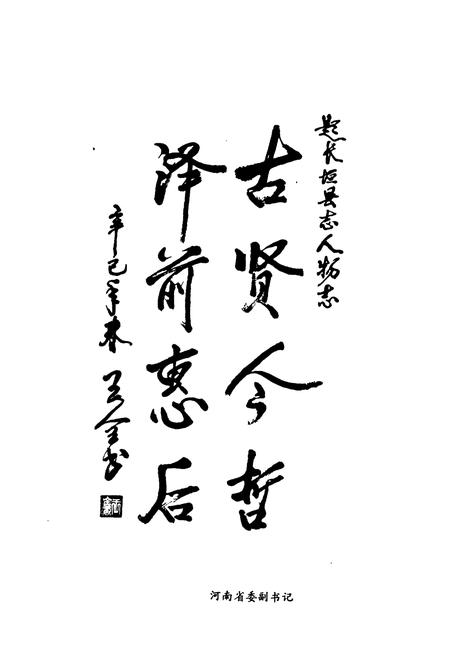 题长垣县志人物志
古贤今哲
泽前惠后
辛巳年春 王全书
河南省委副书记